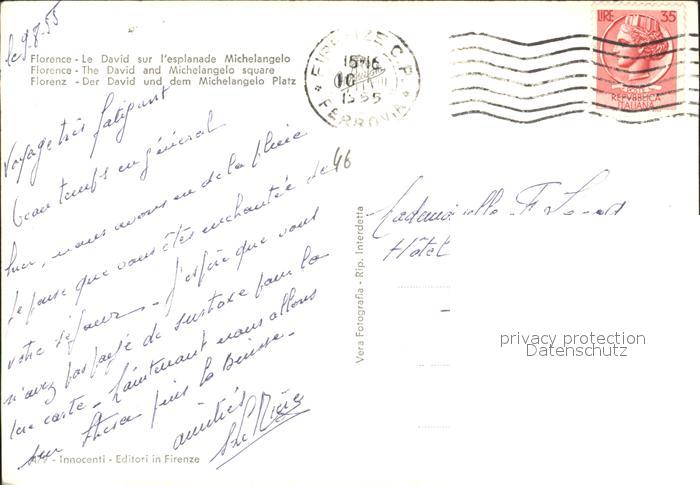 le 9.8.55
Florence - Le David sur l'esplanade Michelangelo
Florence - The David and Michelangelo square
Florenz - Der David und dem Michelangelo Platz
Voyage très fatigant
beau temps en général
hier, nous avons eu de la pluie
Je pense que vous êtes enchantée de
votre séjour - J'espère que vous
n'avez pas payé de surtaxe pour la
carte - Maintenant nous allons
sur puis la Suisse -
amitiés
- Innocenti - Editori in Firenze
Vera Fotografia - Rip. Interdetta
FIRENZE C.P.
15-16
10
1955
FERROVIA
LIRE 35
POSTE
REPVBBLICA
ITALIANA
46
Mademoiselle F
Hôtel
privacy protection
Datenschutz